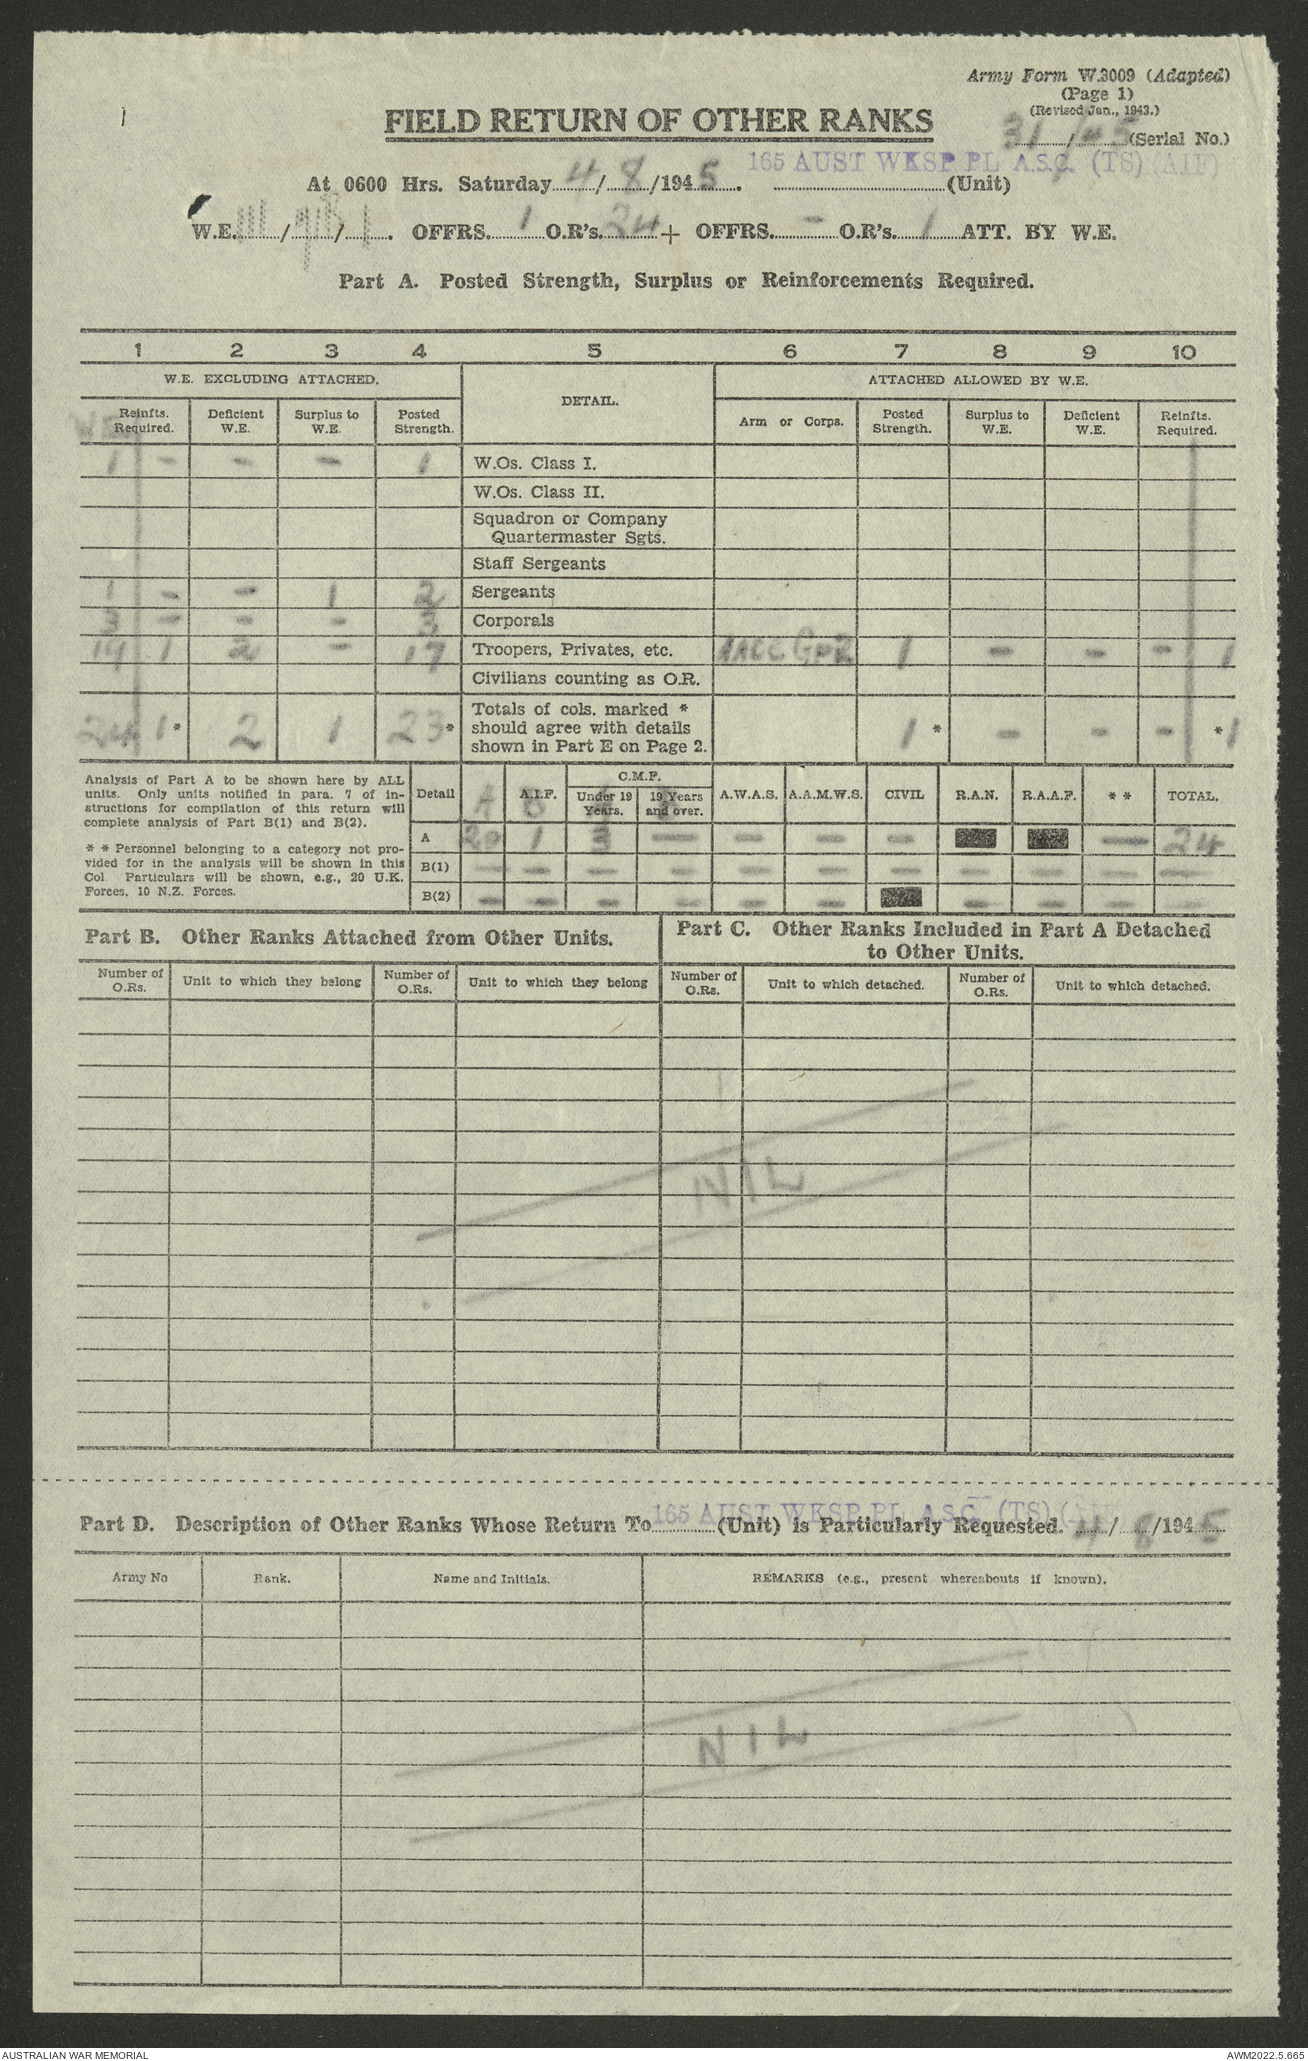 Army Form W.3009 (Adapted)
(Page 1)
(Revised Jan., 1943.)
FIELD RETURN OF OTHER RANKS
31/45 (Serial No.)
165 AUST WKSP PL A.S.C. (TS) (AIF)
At 0600 Hrs. Saturday 4/8/1945. (Unit)
W.E. III/ / 1. OFFRS. 1 O.R's. 24 + OFFRS. - O.R's. 1 ATT. BY W.E.
Part A. Posted Strength, Surplus or Reinforcements Required.
1 2 3 4 5 6 7 8 9 10
W.E. EXCLUDING ATTACHED. DETAIL. ATTACHED ALLOWED BY W.E.
W.E. Reinfts. Required. Deficient W.E. Surplus to W.E. Posted Strength. Arm or Corps. Posted Strength. Surplus to W.E. Deficient W.E. Reinfts. Required.
1 - - - 1 W.Os. Class I.
W.Os. Class II.
Squadron or Company
Quartermaster Sgts.
Staff Sergeants
1 - - 1 2 Sergeants
3 - - - 3 Corporals
19 1 2 - 17 Troopers, Privates, etc. AACC Gp2 1 - - - 1
Civilians counting as O.R.
Totals of cols. marked *
24 1* 2 1 23* should agree with details 1* - - - *1
shown in Part E on Page 2.
Analysis of Part A to be shown here by ALL
units. Only units notified in para. 7 of in-
structions for compilation of this return will
complete analysis of Part B(1) and B(2).
* * Personnel belonging to a category not pro-
vided for in the analysis will be shown in this
Col. Particulars will be shown, e.g., 20 U.K.
Forces, 10 N.Z. Forces.
Detail A A.I.F. B C.M.F. Under 19 Years. A 19 Years and over. B A.W.A.S. A.A.M.W.S. CIVIL R.A.N. R.A.A.F. * * TOTAL.
A 20 1 3 - - - - - 24
B(1) - - - - - - - - - - -
B(2) - - - - - - - - - -
Part B. Other Ranks Attached from Other Units.
Part C. Other Ranks Included in Part A Detached
to Other Units.
Number of O.Rs. Unit to which they belong Number of O.Rs. Unit to which they belong Number of O.Rs. Unit to which detached. Number of O.Rs. Unit to which detached.
NIL
165 AUST WKSP PL A.S.C. (TS) (AIF)
Part D. Description of Other Ranks Whose Return To (Unit) is Particularly Requested. 4/8/1945
Army No Rank. Name and Initials. REMARKS (e.g., present whereabouts if known).
NIL
AUSTRALIAN WAR MEMORIAL
AWM2022.5.665